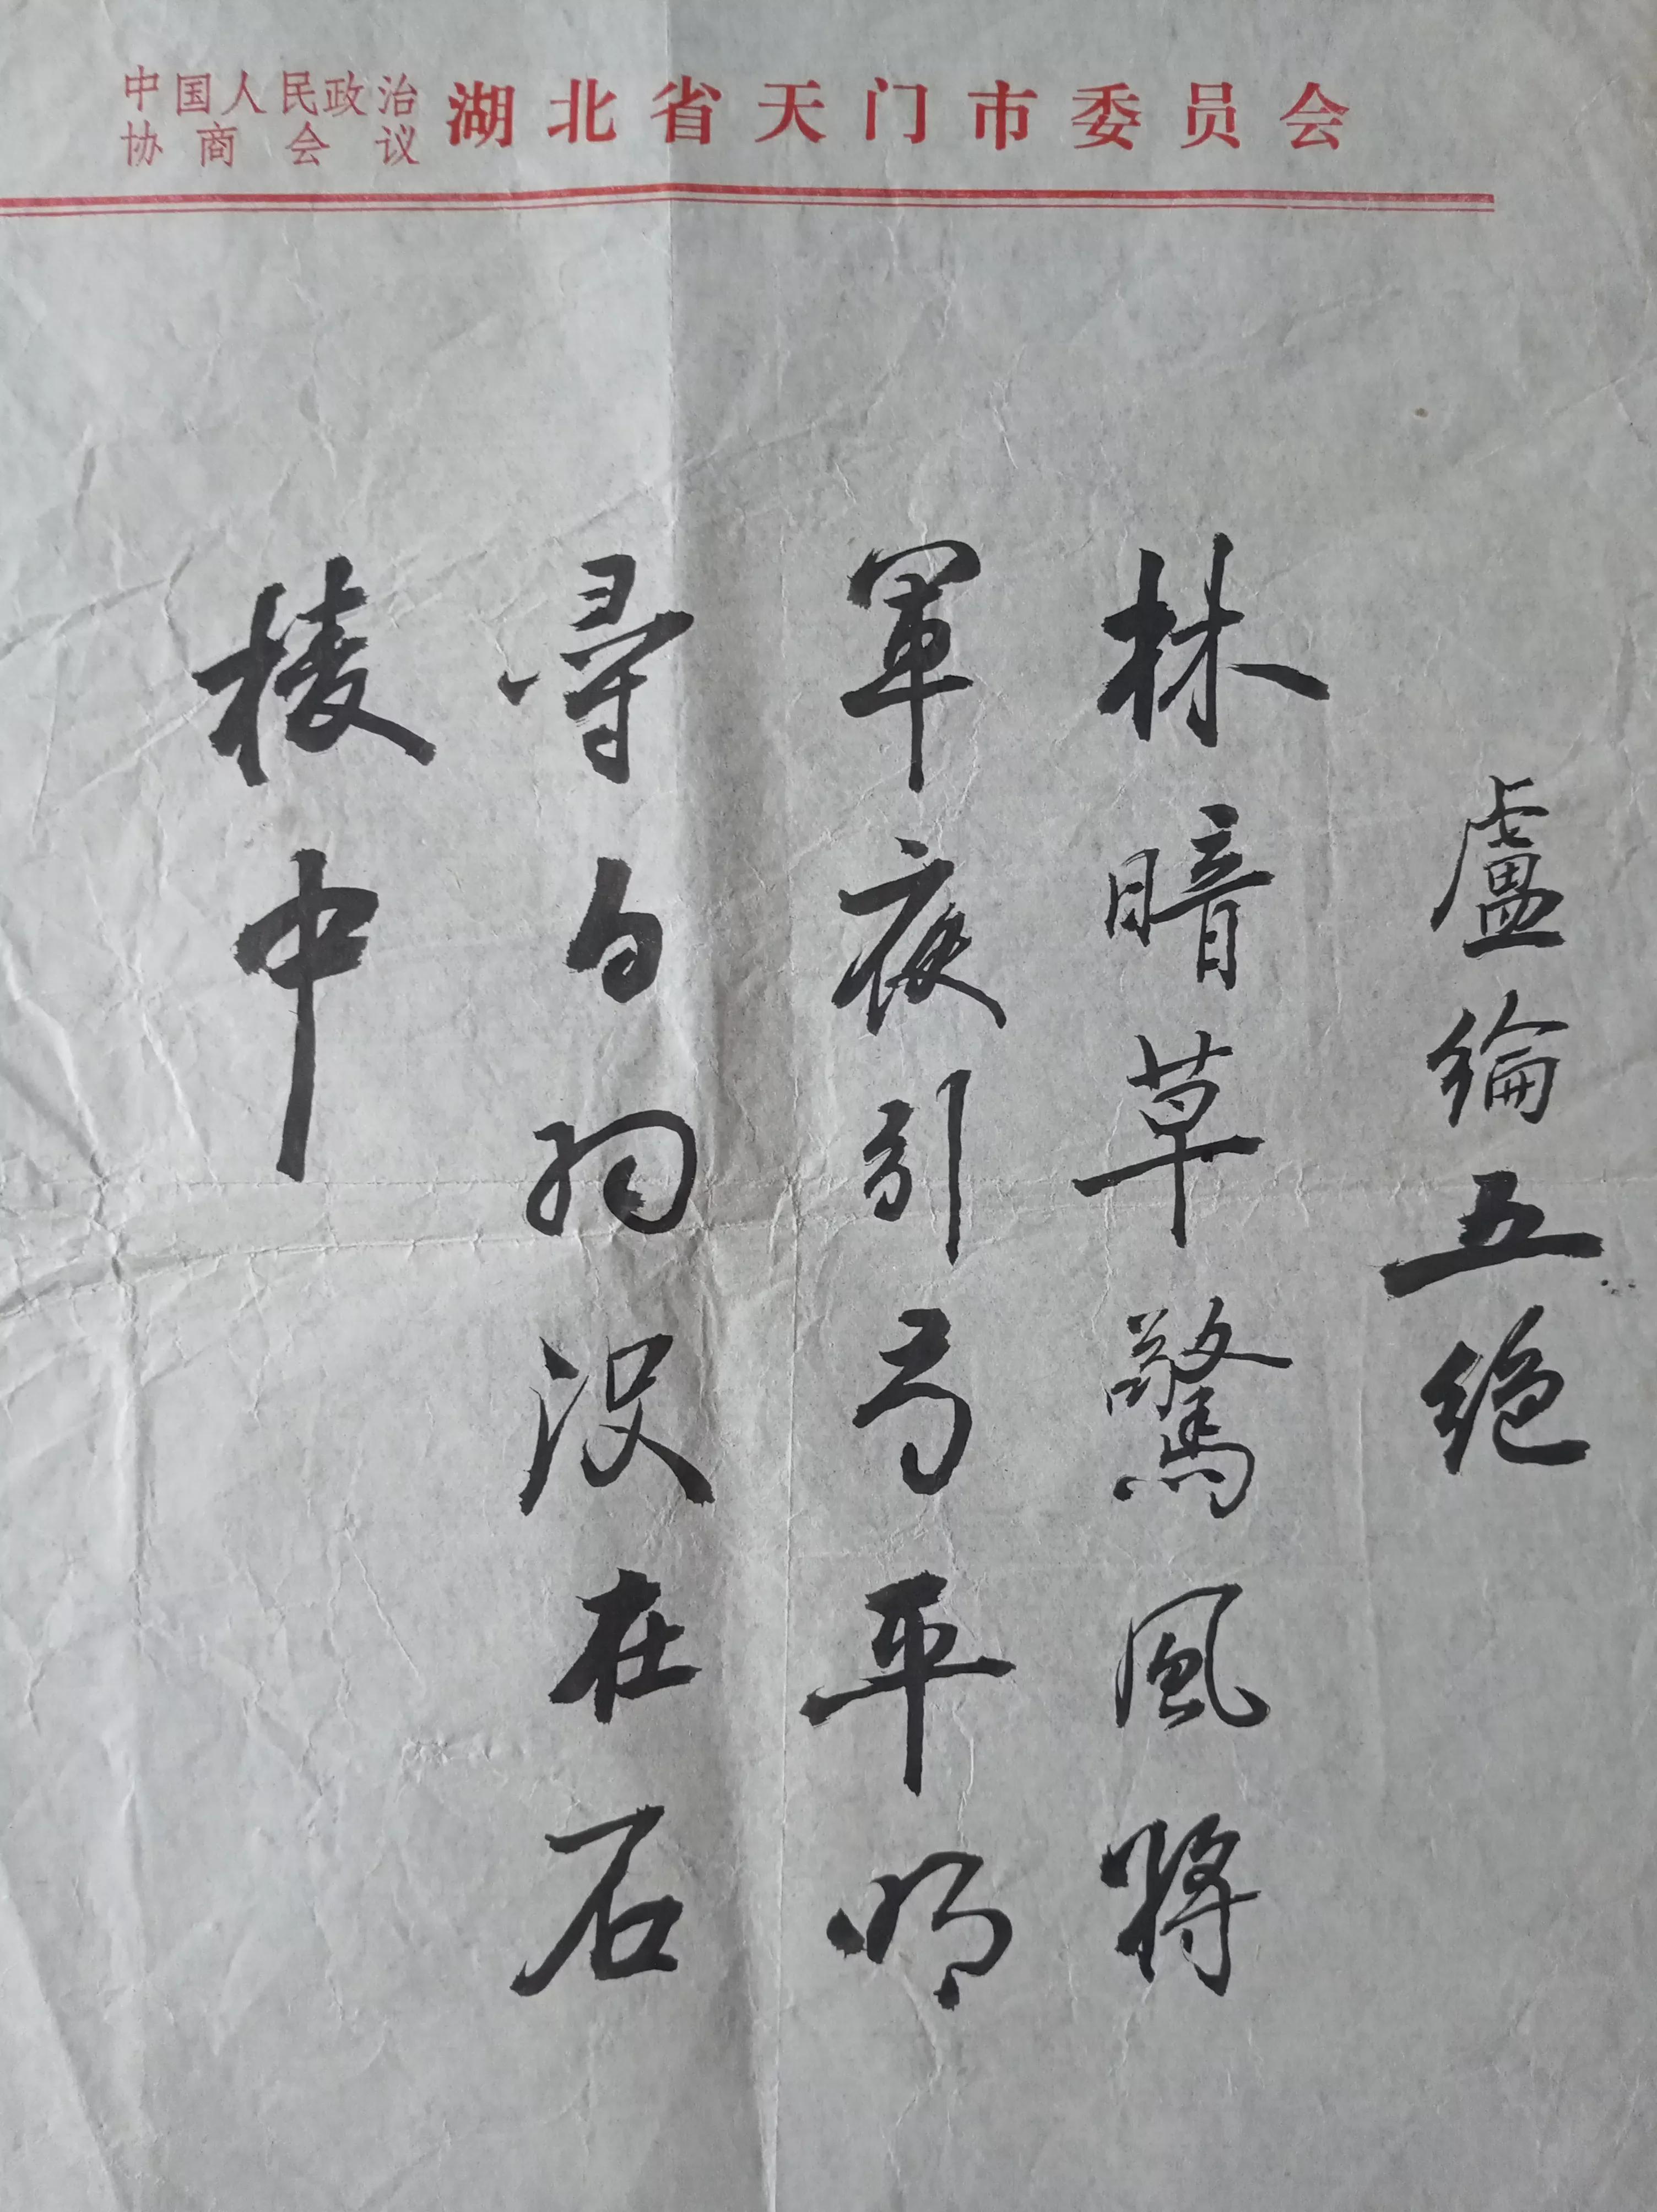 中国人民政治
协商会议
湖北省天门市委员会
盧綸五绝
林暗草驚風将
軍夜引弓平明
尋白羽没在石
棱中